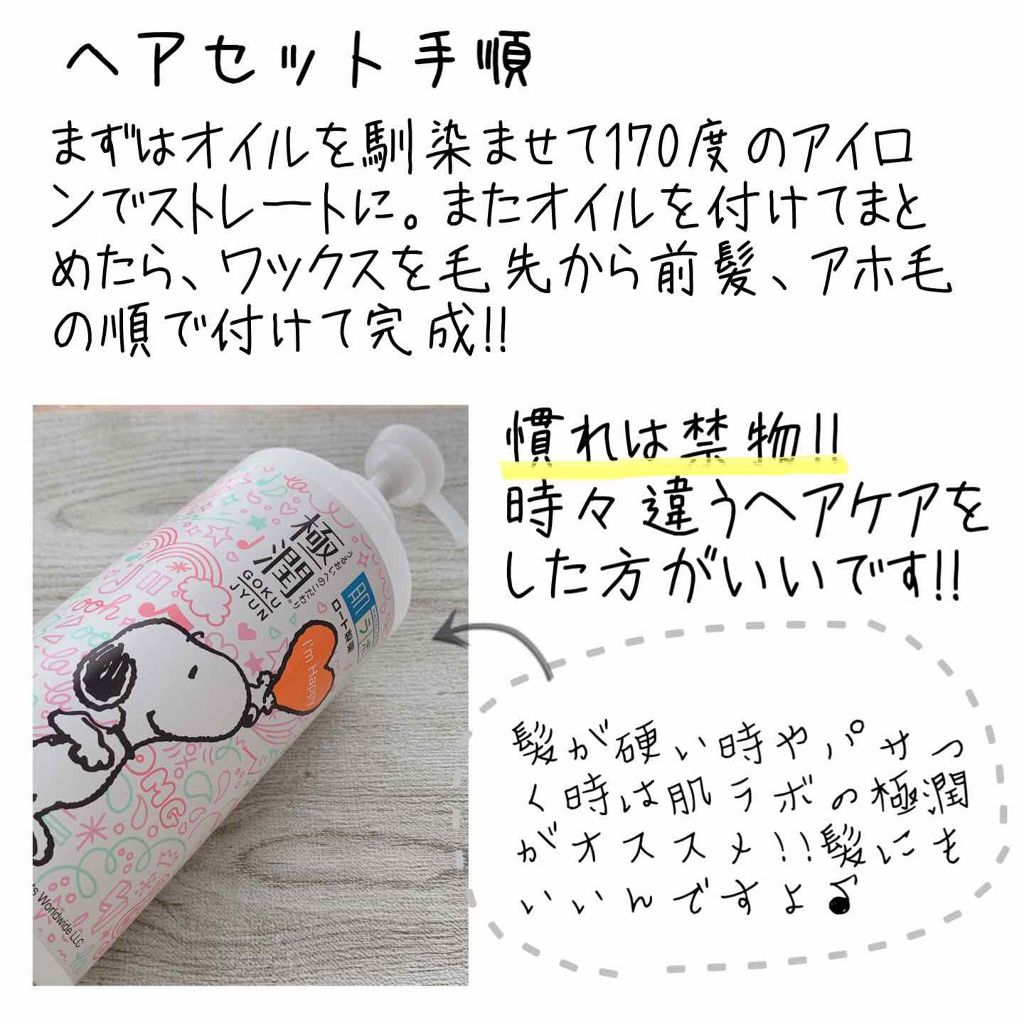 ヘアセット手順
まずはオイルを馴染ませて170度のアイロ
ンでストレートに。またオイルを付けてまと
めたら、ワックスを毛先から前髪、アホ毛
の順で付けて完成!!
慣れは禁物!!
時々違うヘアケアを
した方がいいです!!
髪が硬い時やパサつ
く時は肌ラボの極潤
がオススメ!!髪にも
いいんですよ♪
極潤
GOKU
JYUN
うるおいへのこだわり
肌ラボ
ロート製薬
I'm Happy
ooh
OMG
s Worldwide LLC